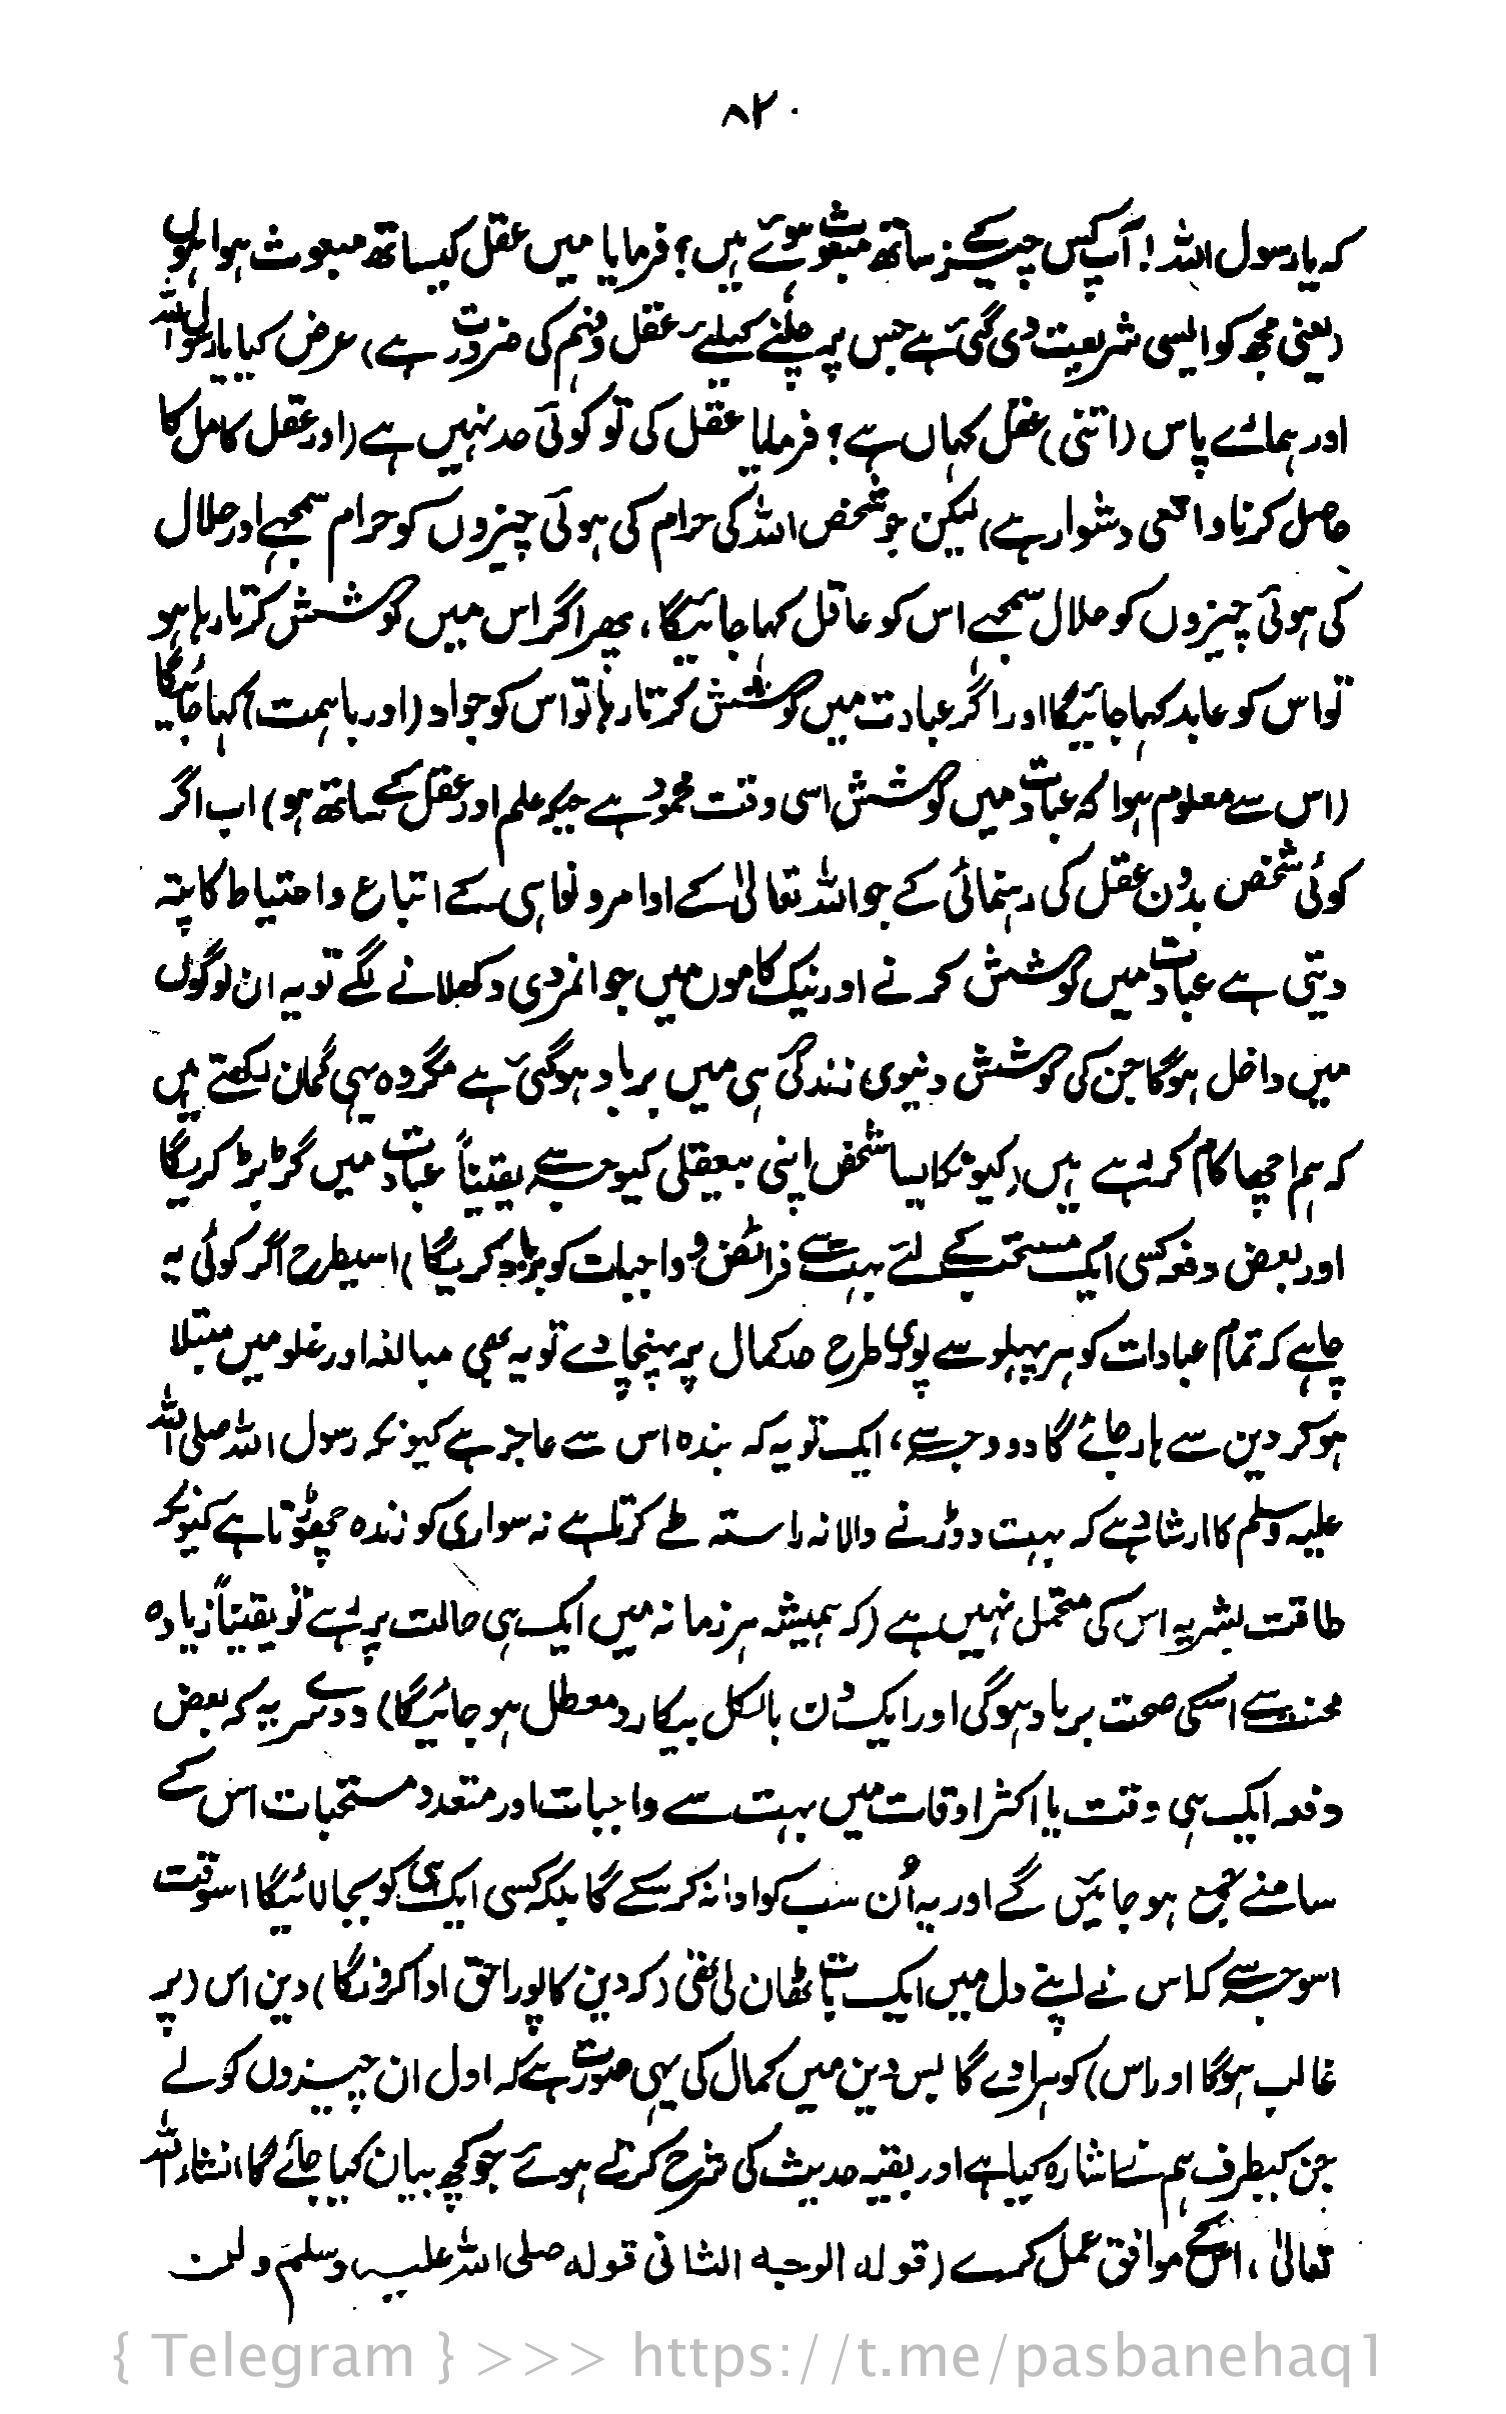 ۸۲۰
کہ یارسول اللہ! آپ کس چیز کے ساتھ مبعوث ہوئے ہیں؟ فرمایا میں عقل کیساتھ مبعوث ہوا ہوں
(یعنی مجھ کو ایسی شریعت دی گئی ہے جس پر چلنے کیلئے عقل و فہم کی ضرورت ہے) عرض کیا یارسول اللہ
اور ہمارے پاس (اتنی) عقل کہاں ہے؟ فرمایا عقل کی تو کوئی حد نہیں ہے (اور عقل کامل کا
حاصل کرنا واقعی دشوار ہے) لیکن جو شخص اللہ کی حرام کی ہوئی چیزوں کو حرام سمجھے اور حلال
کی ہوئی چیزوں کو حلال سمجھے اس کو عاقل کہا جائیگا، پھر اگر اس میں کوشش کرتا رہا ہو
تو اس کو عابد کہا جائیگا اور اگر عبادت میں کوشش کرتا رہا تو اس کو جواد (اور باہمت) کہا جائیگا
(اس سے معلوم ہوا کہ عبادت میں کوشش اسی وقت محمود ہے جبکہ علم اور عقل کے ساتھ ہو) اب اگر
کوئی شخص بدون عقل کی رہنمائی کے جو اللہ تعالیٰ کے اوامر و نواہی کے اتباع و احتیاط کا پتہ
دیتی ہے عبادت میں کوشش کرنے اور نیک کاموں میں جوانمردی دکھلانے لگے تو یہ ان لوگوں
میں داخل ہوگا جن کی کوشش دنیوی زندگی ہی میں برباد ہوگئی ہے مگر وہ یہی گمان رکھتے ہیں
کہ ہم اچھا کام کررہے ہیں (کیونکہ ایسا شخص اپنی بیعقلی کیوجہ سے یقیناً عبادت میں گڑبڑ کریگا
اور بعض دفعہ کسی ایک مستحب کے لئے بہت سے فرائض و واجبات کو برباد کریگا) اسیطرح اگر کوئی یہ
چاہے کہ تمام عبادات کو ہر پہلو سے پوری طرح حد کمال پر پہنچا دے تو یہ بھی مبالغہ اور غلو میں مبتلا
ہوکر دین سے ہار جائے گا دو وجہ سے، ایک تو یہ کہ بندہ اس سے عاجز ہے کیونکہ رسول اللہ صلی اللہ
علیہ وسلم کا ارشاد ہے کہ بہت دوڑنے والا نہ راستہ طے کرتا ہے نہ سواری کو زندہ چھوڑتا ہے کیونکہ
طاقت بشریہ اس کی متحمل نہیں ہے (کہ ہمیشہ ہر زمانہ میں ایک ہی حالت پر رہے تو یقیناً زیادہ
محنت سے اسکی صحت برباد ہوگی اور ایک دن بالکل بیکار و معطل ہو جائیگا) دوسرے یہ کہ بعض
دفعہ ایک ہی وقت یا اکثر اوقات میں بہت سے واجبات اور متعدد مستحبات اس کے
سامنے جمع ہو جائیں گے اور یہ اُن سب کو ادا نہ کرسکے گا بلکہ کسی ایک ہی کو بجا لائیگا اسوقت
اسوجہ سے کہ اس نے اپنے دل میں ایک بات ٹھان لی تھی (کہ دین کا پورا حق ادا کرونگا) دین اس (پر
غالب ہوگا اور اس) کو ہرا دے گا پس دین میں کمال کی یہی صورت ہے کہ اول ان چیزوں کو لے
جن کیطرف ہم نے اشارہ کیا ہے اور بقیہ حدیث کی شرح کرتے ہوئے جو کچھ بیان کیا جائے گا انشاء اللہ
تعالیٰ، اسکے موافق عمل کرے (قولہ الوجہ الثانی قولہ صلی اللہ علیہ وسلم ولن
{ Telegram } >>> https://t.me/pasbanehaq1